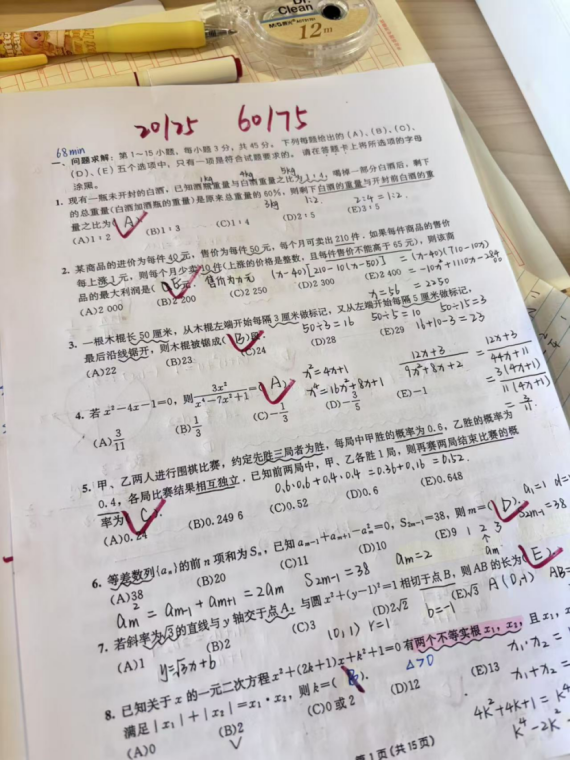 Dr.
Clean
M&G
12m
20/25 60/75
68min
一、问题求解：第1～15小题，每小题3分，共45分。下列每题给出的（A）、（B）、（C）、
（D）、（E）五个选项中，只有一项是符合试题要求的。请在答题卡上将所选项的字母
涂黑。
1kg 4kg 5kg
1. 现有一瓶未开封的白酒，已知酒瓶重量与白酒重量之比为1:4，喝掉一部分白酒后，剩下
的总重量(白酒加酒瓶的重量)是原来总重量的60%，则剩下白酒的重量与开封前白酒的重
量之比为( A ) 3kg 1:2 2:4=1:2
(A)1:2 (B)1:3 (C)1:4 (D)2:5 (E)3:5
2. 某商品的进价为每件40元，售价为每件50元，每个月可卖出210件.如果每件商品的售价
每上涨1元，则每个月少卖10件(上涨的价格是整数，且每件售价不能高于65元)，则该商
品的最大利润是( E )元. 售价为x元 (x-40)[210-10(x-50)] =(x-40)(710-10x)
(A)2 000 (B)2 200 (C)2 250 (D)2 300 (E)2 400 =-10x²+1110x-28400
x=56 =2250
3. 一根木棍长50厘米，从木棍左端开始每隔3厘米做标记，又从左端开始每隔5厘米做标记，
最后沿线锯开，则木棍被锯成( B )段. 50÷3=16 50÷5=10 50÷15=3
(A)22 (B)23 (C)24 (D)28 (E)29 16+10-3=23
4. 若x²-4x-1=0，则3x²/(x⁴-7x²+1)=( A ) x²=4x+1 x⁴=16x²+8x+1
(A)3/11 (B)1/3 (C)-1/3 (D)-3/5 (E)-1
(12x+3)/(9x²+8x+2) = (12x+3)/(44x+11)
=3(4x+1)/11(4x+1)
=3/11
5. 甲、乙两人进行围棋比赛，约定先胜三局者为胜，每局中甲胜的概率为0.6，乙胜的概率为
0.4，各局比赛结果相互独立.已知前两局中，甲、乙各胜1局，则再赛两局结束比赛的概
率为( C 0.6·0.6+0.4·0.4=0.36+0.16=0.52.
(A)0.24 (B)0.249 6 (C)0.52 (D)0.6 (E)0.648
6. 等差数列{aₙ}的前n项和为Sₙ，已知aₘ₋₁+aₘ₊₁-aₘ²=0，S₂ₘ₋₁=38，则m=( D ). a₁=1
(A)38 (B)20 (C)11 (D)10 (E)9 1 2 3 S₂ₘ₋₁=38
aₘ²=aₘ₋₁+aₘ₊₁=2aₘ S₂ₘ₋₁=38 aₘ=2 aₘ
7. 若斜率为√3的直线与y轴交于点A，与圆x²+(y-1)²=1相切于点B，则AB的长为( E ).
(A)1 (B)2 (C)3 (D)2√2 (E)√3 A(0,-1) AB=
y=√3x+b (0,1) r=1 b=-1
8. 已知关于x的一元二次方程x²+(2k+1)x+k²+1=0有两个不等实根x₁，x₂，且x₁，x
满足|x₁|+|x₂|=x₁·x₂，则k=( B ). Δ>0 x₁·x₂=
(A)0 (B)2 (C)0或2 (D)12 (E)13 x₁+x₂=
4k²+4k+1=k⁴
k⁴-2k²
第1页(共15页)